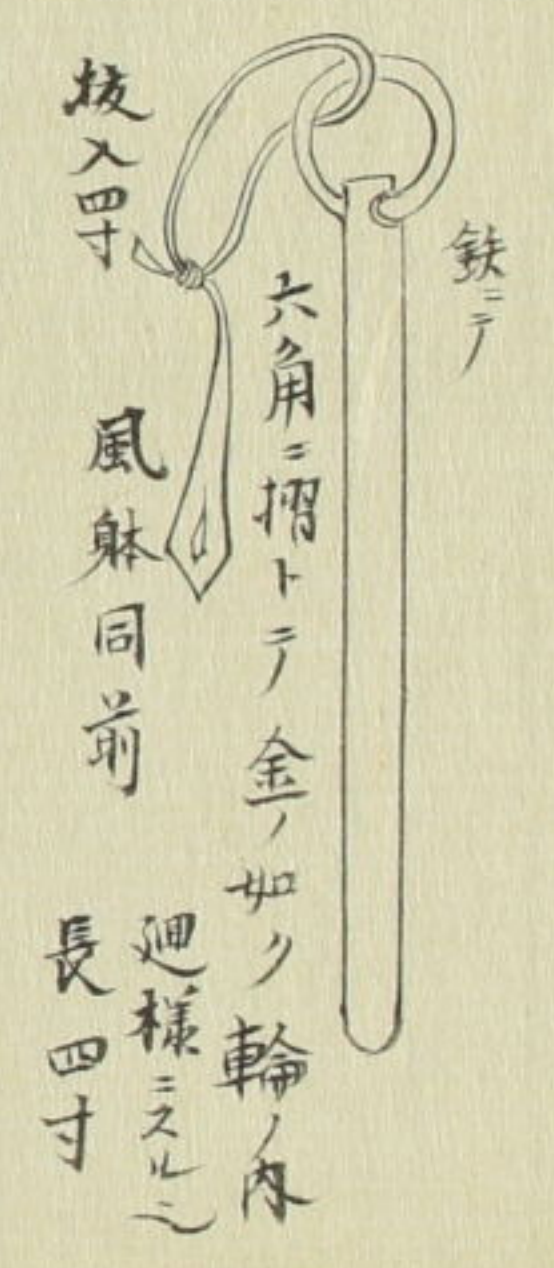 鉄ニテ
六角ニ摺トテ金ノ如ク輪ノ内
廻様ニスル也
抜入四寸
風躰同前
長四寸